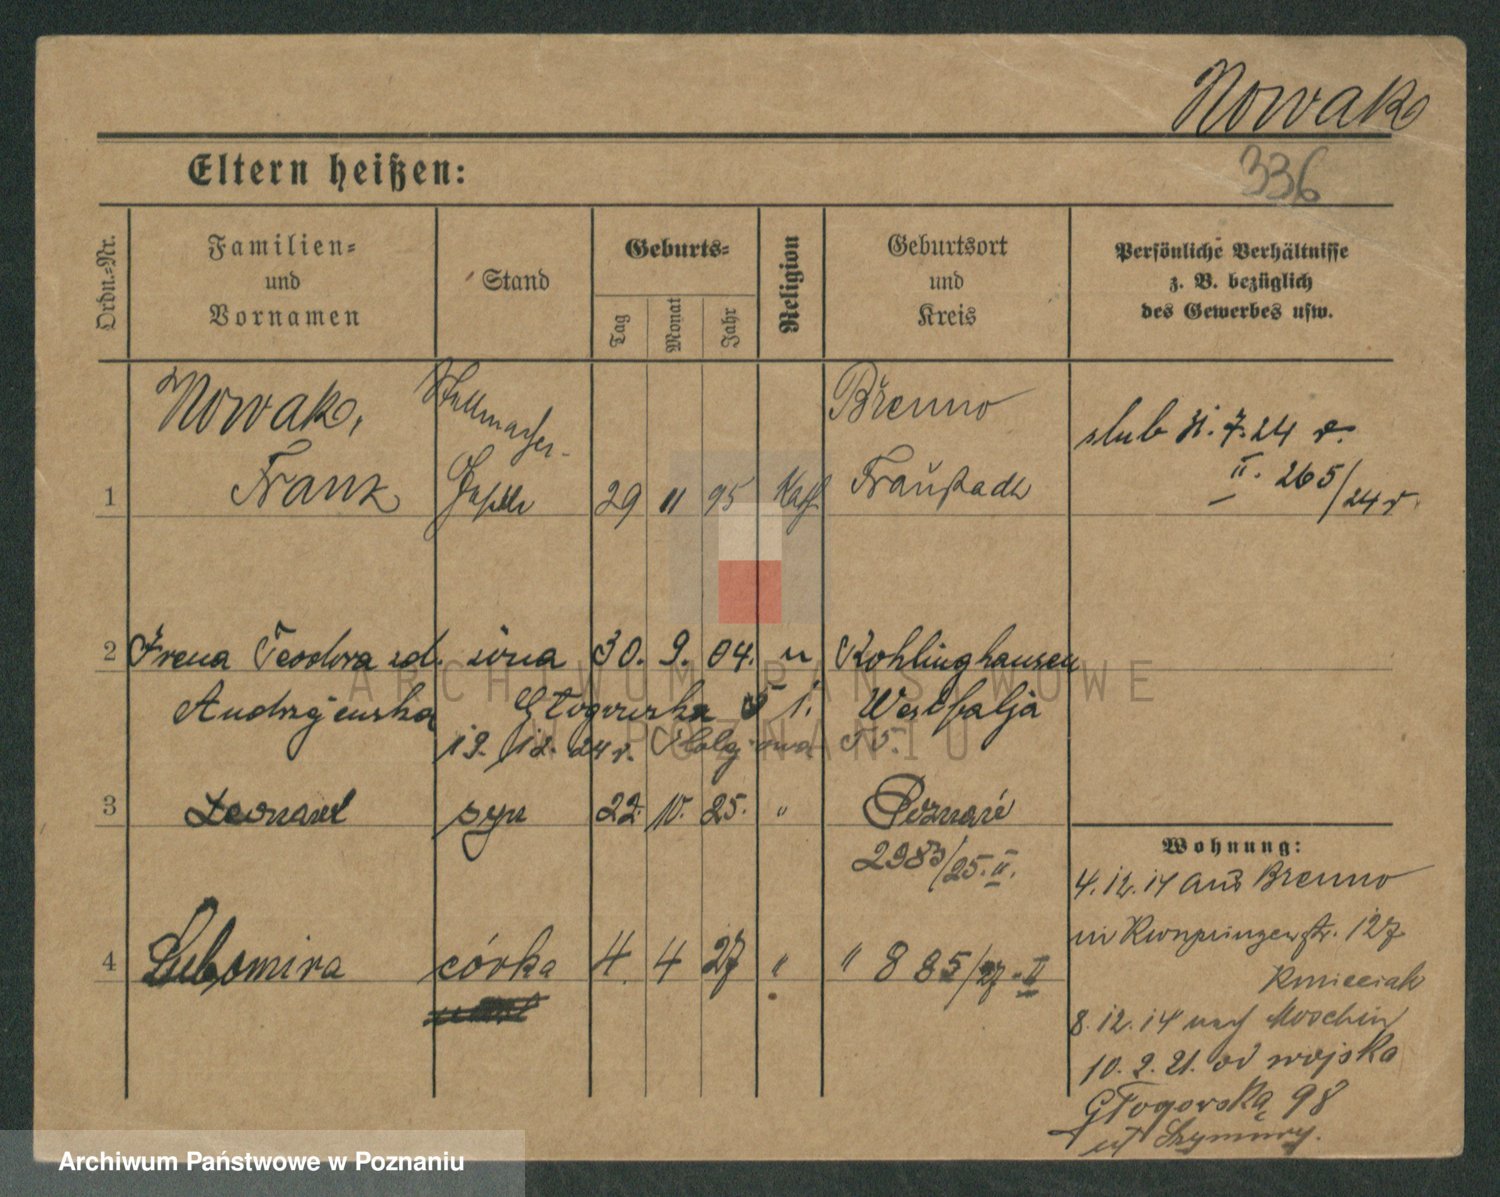 Nowak
336
Eltern heißen:
Ordn.-Nr.
Familien-
und
Vornamen
Stand
Geburts-
Tag
Monat
Jahr
Religion
Geburtsort
und
Kreis
Persönliche Verhältnisse
z. B. bezüglich
des Gewerbes usw.
1
Nowak,
Franz
Stellmacher-
29 11 95 Kath
Brenno
Fraustadt
slub 31. 7. 24 r.
II. 265/24 r.
2 Irena Teodora zd. żona 30. 9. 04. " Kohlinghausen
Andrzejewska Głogowska 51. Westfalja
19. 12. 24 r.
3 Leonard syn 22. 10. 25. " Poznań
2983/25. II.
4 Lubomira córka 4. 4 27 " " 885/27. II
Wohnung:
4. 12. 14 aus Brenno
in Kronprinzenstr. 127
Kmieciak
8. 12. 14 nach Moschin
10. 2. 21. od wojska
Głogowska 98
ARCHIWUM PAŃSTWOWE
W POZNANIU
Archiwum Państwowe w Poznaniu